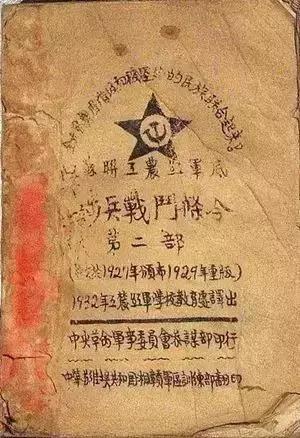 和被壓迫的民族聯合起來
聯工農紅軍底
兵戰鬥條令
第二部
1927年頒布1929年重版)
1932年工農紅軍學校教育處譯出
中央革命軍事委員會參謀部印行
中華蘇維埃共和國湘贛軍區訓練部翻印